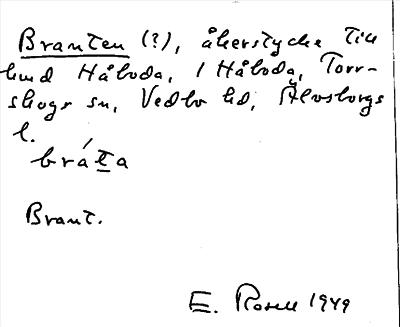 Branten (?), åkerstycke till
lund Håbyda, i Håbyda, Torr-
skogs sn, Vedbo hd, Älvsborgs
l.
bráta
Brant.
E. Rosell 1949